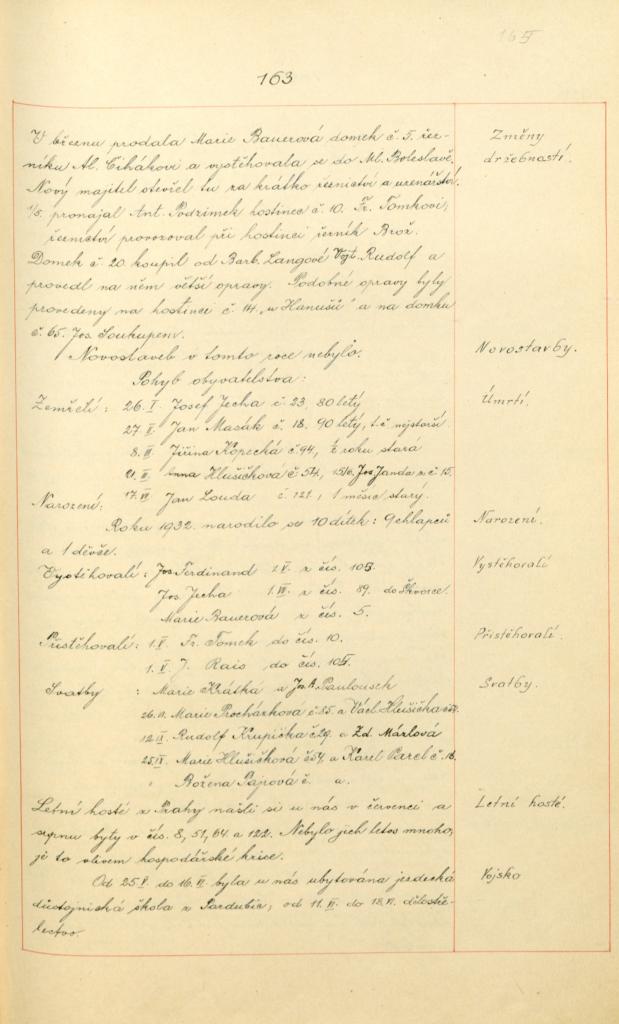 163
V březnu prodala Marie Bauerová domek č. 5. řez-
níku Al. Cihákovi a vystěhovala se do Ml. Boleslavě.
Nový majitel otevřel tu za krátko řeznictví a uzenářství.
1/5. pronajal Ant. Podzimek hostinec č. 10. Fr. Tomkovi,
řeznictví provozoval při hostinci řezník Brož.
Domek č. 20. koupil od Barb. Langové Vojt. Rudolf a
provedl na něm větší opravy. Podobné opravy byly
provedeny na hostinci č. 14. „u Hanušů" a na domku
č. 65. Jos. Soukupem.
Novostaveb v tomto roce nebylo.
Pohyb obyvatelstva:
Zemřelí: 26. I. Josef Jecha č. 23, 80 letý
27. II. Jan Masák č. 18. 90 letý, t. č. nejstarší
8. III. Jiřina Kopecká č. 94, roku stará
21. III. Anna Hlušičková č 54, 15/6. Jos. Janda z č. 15.
17. VII. Jan Louda č. 121, 1 měsíc starý.
Narození:
Roku 1932. narodilo se 10 dítek: 9 chlapců
a 1 děvče.
Vystěhovalí: Jos. Ferdinand 1. V. z čís. 105.
Jos. Jecha 1. VII. z čís. 89. do Škvorce.
Marie Bauerová z čís. 5.
Přistěhovalí: 1. V. Fr. Tomek do čís. 10.
1. V. J. Rais do čís. 105.
Svatby: Marie Krátká a Paulousek
26. VI. Marie Procházkova č. 85. a Václ. Hlušička č. 54.
12. II. Rudolf Krupička č. 29. a Zd. Márlová
25. IX. Marie Hlušičková č 54. a Karel č. 16.
Božena Pajpová č. a.
Letní hosté z Prahy našli si u nás v červenci a
srpnu byty v čís. 8, 51, 64. a 122. Nebylo jich letos mnoho,
je to vlivem hospodářské krise.
Od 25. V. do 16. VI. byla u nás ubytována jezdecká
důstojnická škola z Pardubic, od 11. VI. do 18. VI. dělostře-
lectvo.
Změny
držebností.
Novostavby.
Úmrtí.
Narození.
Vystěhovalí
Přistěhovalí.
Svatby.
Letní hosté.
Vojsko